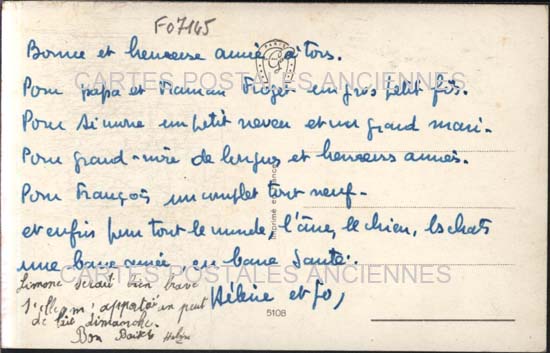 F07145
Bonne et heureuse année à tous.
CARTES POSTALES ANCIENNES
Pour papa et maman Froger un gros petit fils.
Pour Simone un petit neveu et un grand mari.
Pour grand-mère de longues et heureuses années.
Pour François un complet tout neuf.
et enfin pour tout le monde l'âne, le chien, les chats
une bonne année, en bonne santé.
CARTES POSTALES ANCIENNES
Hélène et Jo,
Simone serait bien brave
si elle m'apportait un peu
de lait dimanche.
Bon Baiser Hélène
PARIS
Imprimé en France
5108